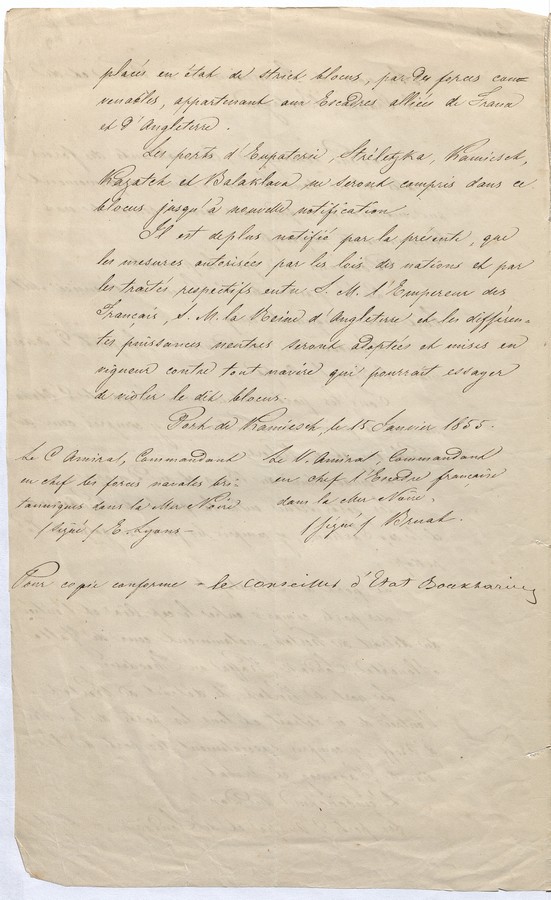 placés en état de strict blocus, par des forces con=
venables, appartenant aux Escadres alliées de France
et d'Angleterre.
Les ports d'Eupatorie, Stréletzka, Kamiesch,
Kazatch et Balaklava ne seront compris dans ce
blocus jusqu'à nouvelle notification
Il est de plus notifié par la présente, que
les mesures autorisées par les lois des nations et par
les traités respectifs entre S. M. l'Empereur des
Français, S. M. la Reine d'Angleterre et les différen-
tes puissances neutres seront adoptées et mises en
vigueur contre tout navire qui pourrait essayer
de violer le dit blocus
Port de Kamiesch, le 15 Janvier 1855.
Le C Amiral, Commandant
en chef les forces navales bri-
tanniques dans la Mer Noire
/signé/ E. Lyons-
Le V. Amiral, Commandant
en chef l'Escadre française
dans la Mer Noire.
/signé/ Bruat.
Pour copie conforme - le conseiller d'Etat